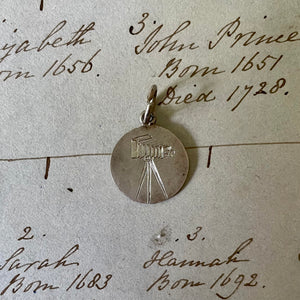 3.
izabeth John Prince
n 1656. Born 1651
Died 1728.
2. 3.
Sarah Hannah
Born 1683 Born 1692.